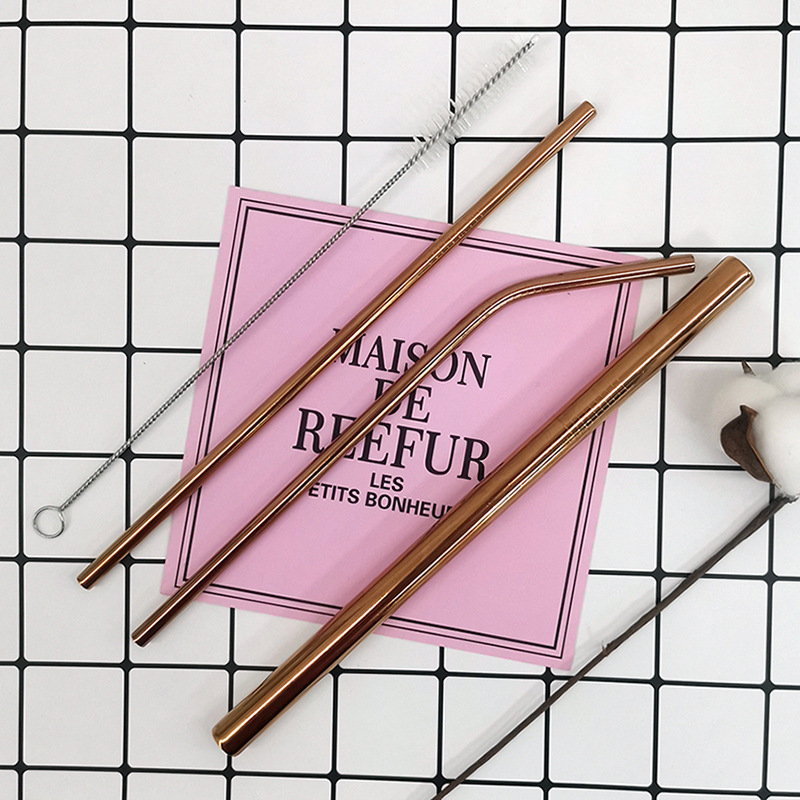 MAISON
DE
REEFUR
LES
ETITS BONHEU